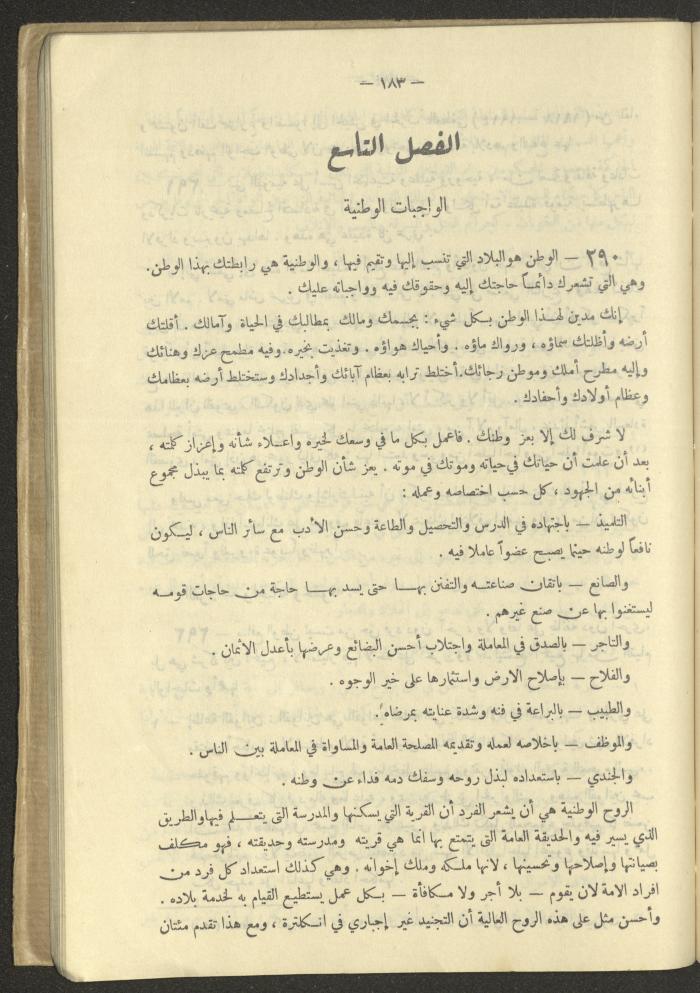 — ١٨٣ —
الفصل التاسع
الواجبات الوطنية
٢٩٠ — الوطن هو البلاد التي تنسب إليها وتقيم فيها ، والوطنية هي رابطتك بهذا الوطن.
وهي التي تشعرك دائمـاً حاجتك إليه وحقوقك فيه وواجباته عليك .
إنك مدين لهـذا الوطن بـكل شيء : بجسمك ومالك بمطالبك في الحياة وآمالك . أقلتك
أرضه وأظلتك سماؤه ، ورواك ماؤه . وأحياك هواؤه . وتغذيت بخيره. وفيه مطمح عزك وهنائك
وإليه مطرح أملك وموطن رجائك. أختلط ترابه بعظام آبائك وأجدادك وستختلط أرضه بعظامك
وعظام أولادك وأحفادك .
لا شرف لك إلا بعز وطنك . فاعمل بكل ما في وسعك لخيره واعـلاء شأنه وإعزاز كلمته ،
بعد أن علمت أن حياتك في حياته وموتك في موته . يعز شأن الوطن وترتفع كلمته بما يبذل مجموع
أبنائه من الجهود ، كل حسب اختصاصه وعمله :
التلميذ — باجتهاده في الدرس والتحصيل والطاعة وحسن الأدب مع سائر الناس ، ليـكون
نافعاً لوطنه حينما يصبـح عضواً عاملا فيه .
والصانع — باتقان صناعتـه والتفنن بهـا حتى يسد بهـا حاجة من حاجات قومـه
ليستغنوا بها عن صنع غيرهم .
والتاجر — بالصدق في المعاملة واجتلاب أحسن البضائع وعرضها بأعدل الأثمان .
والفلاح — بإصلاح الارض واستثمارها على خير الوجوه .
والطبيب — بالبراعة في فنه وشدة عنايته بمرضاه.
والموظف — باخلاصه لعمله وتقديمه المصلحة العامة والمساواة في المعاملة بين الناس .
والجندي — باستعداده لبذل روحه وسفك دمه فداء عن وطنه .
الروح الوطنية هي أن يشعر الفرد أن القرية التي يسكنها والمدرسة التى يتعـلم فيها والطريق
الذي يسير فيه والحديقة العامة التى يتمتع بها انما هي قريته ومدرسته وحديقته ، فهو مكلف
بصيانتها وإصلاحها وتحسينها ، لانها ملكه وملك إخوانه . وهي كذلك استعداد كل فرد من
افراد الامة لان يقوم — بلا أجر ولا مـكافأة — بـكل عمل يستطيع القيام به لخدمة بلاده .
وأحسن مثل على هذه الروح العالية أن التجنيد غير إجباري في انـكلترة ، ومع هذا تقدم مئتان